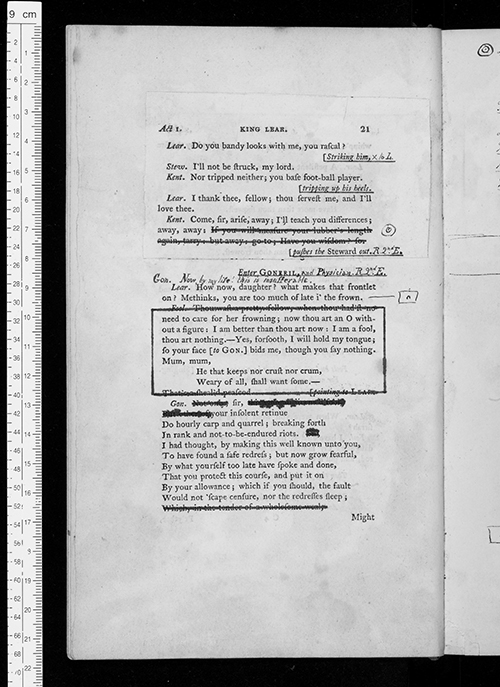 9 cm
Act I. KING LEAR. 21
Lear. Do you bandy looks with me, you raſcal?
[Striking him, x to L.
Stew. I'll not be ſtruck, my lord.
Kent. Nor tripped neither; you baſe foot-ball player.
[tripping up his heels.
Lear. I thank thee, fellow; thou ſerveſt me, and I'll
love thee.
Kent. Come, ſir, ariſe, away; I'll teach you differences;
away, away; If you will meaſure your lubber's length
again, tarry: but away: go to; Have you wiſdom? ſo.
[puſhes the Steward out. R. 2nd E.
Enter GONERIL, and Physician R. 2nd E.
Gon. Now by my life this is insufferable.
Lear. How now, daughter? what makes that frontlet
on? Methinks, you are too much of late i' the frown.
Fool. Thou waſt a pretty fellow, when thou had'ſt no
need to care for her frowning; now thou art an O with-
out a figure: I am better than thou art now: I am a fool,
thou art nothing.—Yes, forſooth, I will hold my tongue;
ſo your face [to GON.] bids me, though you ſay nothing.
Mum, mum,
He that keeps nor cruſt nor crum,
Weary of all, ſhall want ſome.—
[pointing to LEAR.
Gon. ſir,
your inſolent retinue
Do hourly carp and quarrel; breaking forth
In rank and not-to-be-endured riots.
I had thought, by making this well known unto you,
To have found a ſafe redreſs; but now grow fearful,
By what yourſelf too late have ſpoke and done,
That you protect this courſe, and put it on
By your allowance; which if you ſhould, the fault
Would not 'ſcape cenſure, nor the redreſſes ſleep;
Which, in the tender of a wholeſome weal,
Might